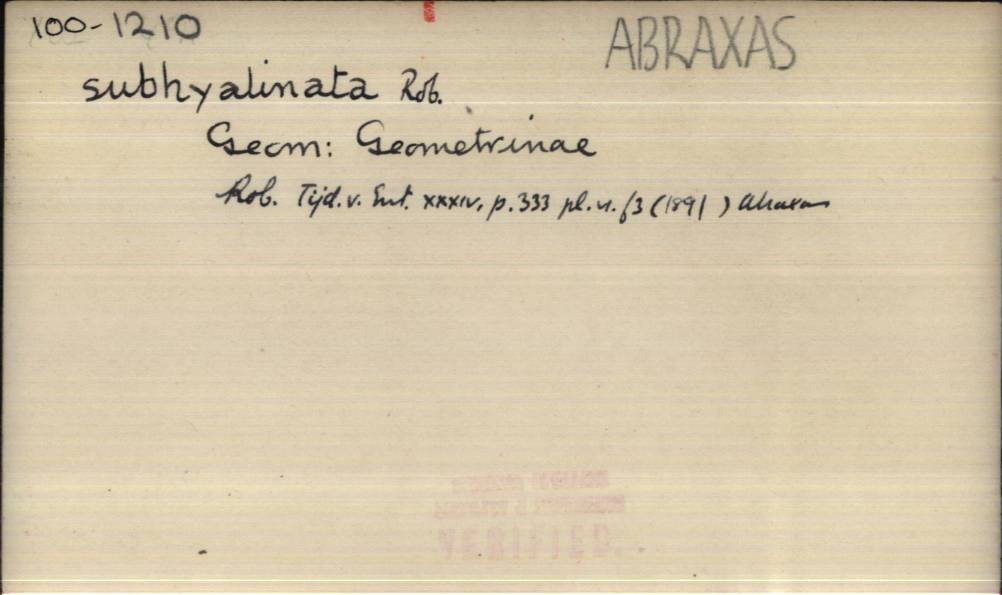 100-1210
ABRAXAS
subhyalinata Rob.
Geom: Geometrinae
Rob. Tijd. v. Ent. xxxiv, p. 333 pl. vi. f3 (1891) Abraxas
VERIFIED.